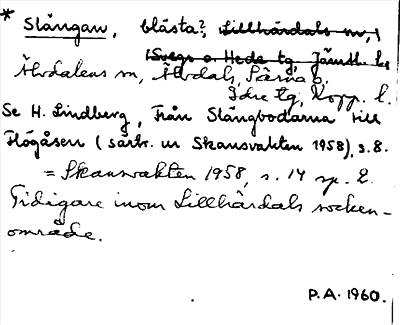 * Slängan, blåsta?, Lillhärdals sn,
Svegs o. Hede tg, Jämtl. l.
Älvdalens sn, Älvdals, Särna o.
Idre tg, Kopp. l.
Se H. Lindberg, Från Slängbodarna till
Högåsen (särtr. ur Skansvakten 1958), s. 8.
= Skansvakten 1958, s. 14 sp. 2.
Tidigare inom Lillhärdals socken-
område.
P.A. 1960.